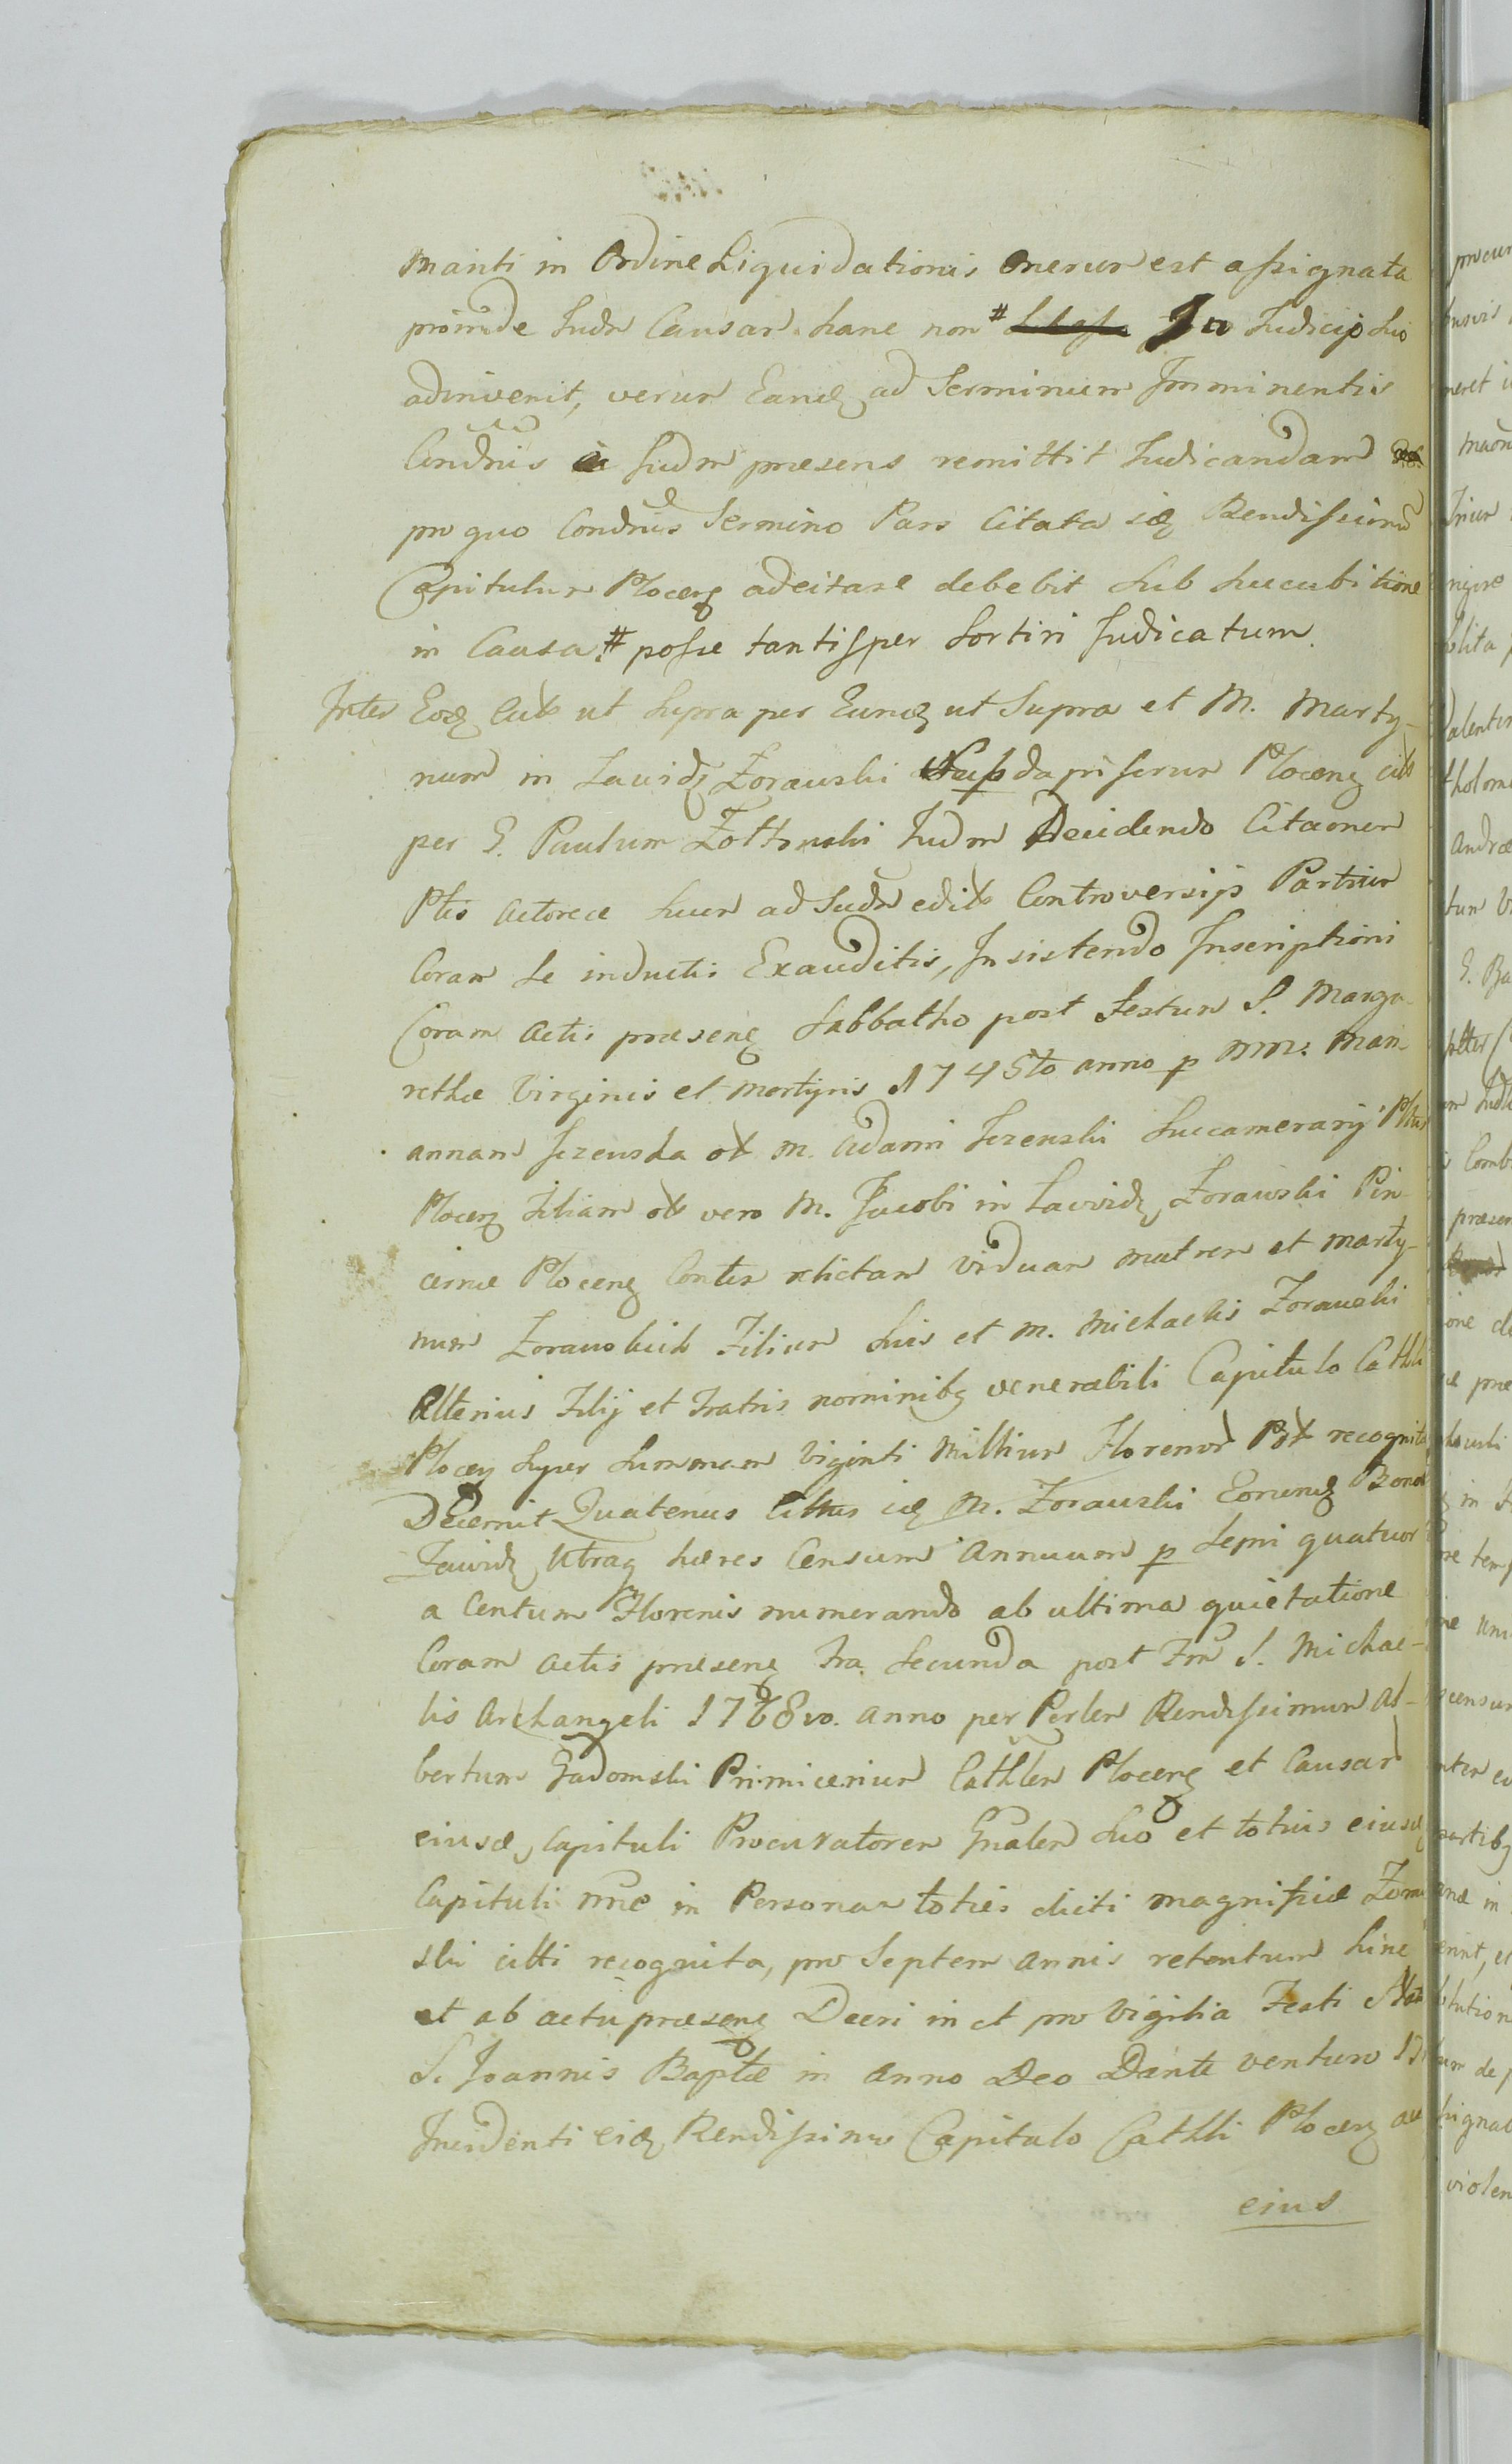 manti in Ordine Liquidationis Onerum est assignata
proinde Judm Causam hanc non # In Judicio suo
adinvenit, verum Eandq ad Terminum Imminentis
Condnis Judm praesens remittit Judicandam
pro quo Condnis Termino Pars Citata idq Rendissimu
Capitulum Plocenq adcitare debebit sub succubitione
in Causa # posse tantisper sortiri Judicatum.
Inter Eosdq cit ut supra per Eundq ut Supra et M. Marty-
num in Lawidz Zorawski Subdapiferum Plocenq cit
per G. Paulum Zottowski Judm Decidendo Citaonem
Ptis Actoreae suum ad Judm edit Controversijs Partium
Coram se inductis Exauditis, Insistendo Inscriptioni
Coram Actis praesenq Sabbatho post Festum S. Marga-
rethae Virginis et Martyris 1745to anno p MM. Mari-
annam Jezewska ol M. Adami Jezewski Succamerarij Pltus
Plocenq Filiam ol vero M. Jacobi in Lawidz Zorawski Pin-
cernae Plocenq Contem relictam Viduam matrem et Marty-
num Zorawskich Filium suis et M. Michaelis Zorawski
Alterius Filij et Fratris nominibq venerabili Capitulo Cathli
Plocen super summam Viginti Millium Florenor Pol recognita
Decernit Quatenus Cittus idq M. Zorawski Eorundq Bonor
Lawidz Utraq haeres Censum Annuum p Septi quatuor
a Centum Florenis numerando ab ultima quietatione
Coram actis praesenq Fra Secunda post Fm S. Michae-
lis Archangeli 1768vo. anno per Perlem Rendissimum Al-
bertum Gadomski Primicerium Cathlem Plocenq et Causar
eiusdq Capituli Procuratorem Gnalem suo et totius eiusdq
Capituli nne in Personam toties dicti magnifici Zoraw
ski citti recognita, pro septem annis retentum hinc
et ab actu praesenq Decri in et pro Vigilia Festi Nat
S. Joannis Baptae in anno Deo Dante venturo 17
Incidenti eidq Rendissimo Capitulo Cathli Plocenq aut
eius